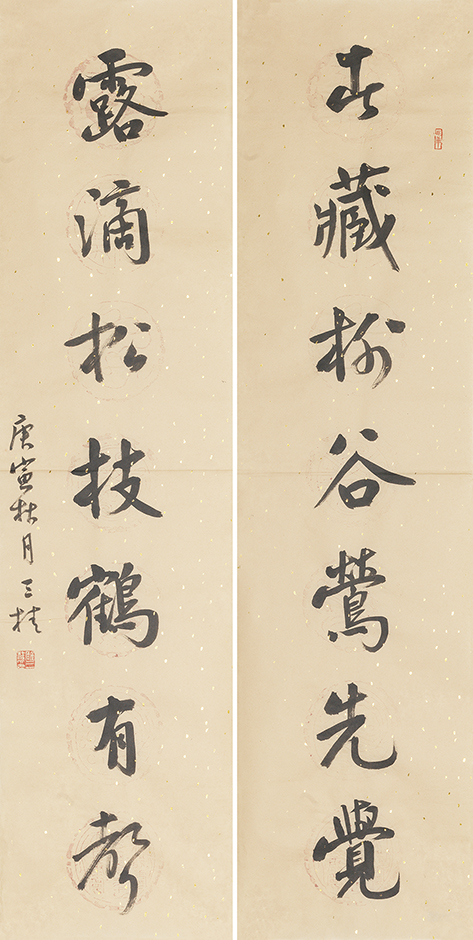 春藏柳谷鶯先覺
露滴松枝鶴有聲
庚寅秋月三桂